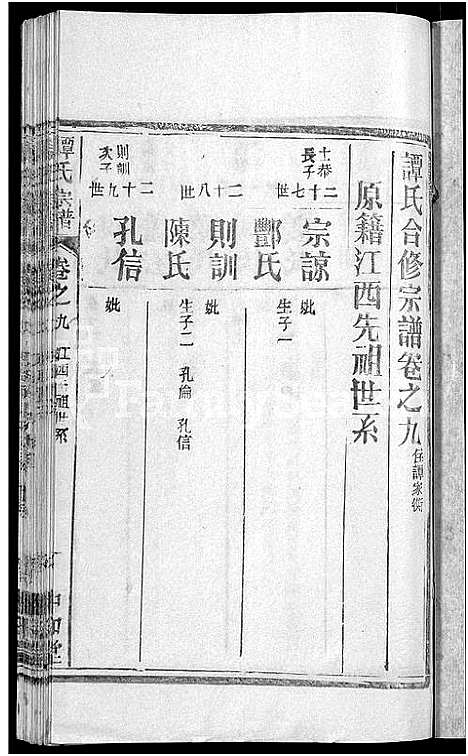 譚氏合修宗譜卷之九 住譚家衖
原籍江西先祖世系
士恭長子 二十七世 宗諒 妣
酆氏 生子一
二十八世 則訓 妣
陳氏 生子二 孔倫 孔信
則訓次子 二十九世 孔信 妣
譚氏宗譜 卷之九 江西先祖世系